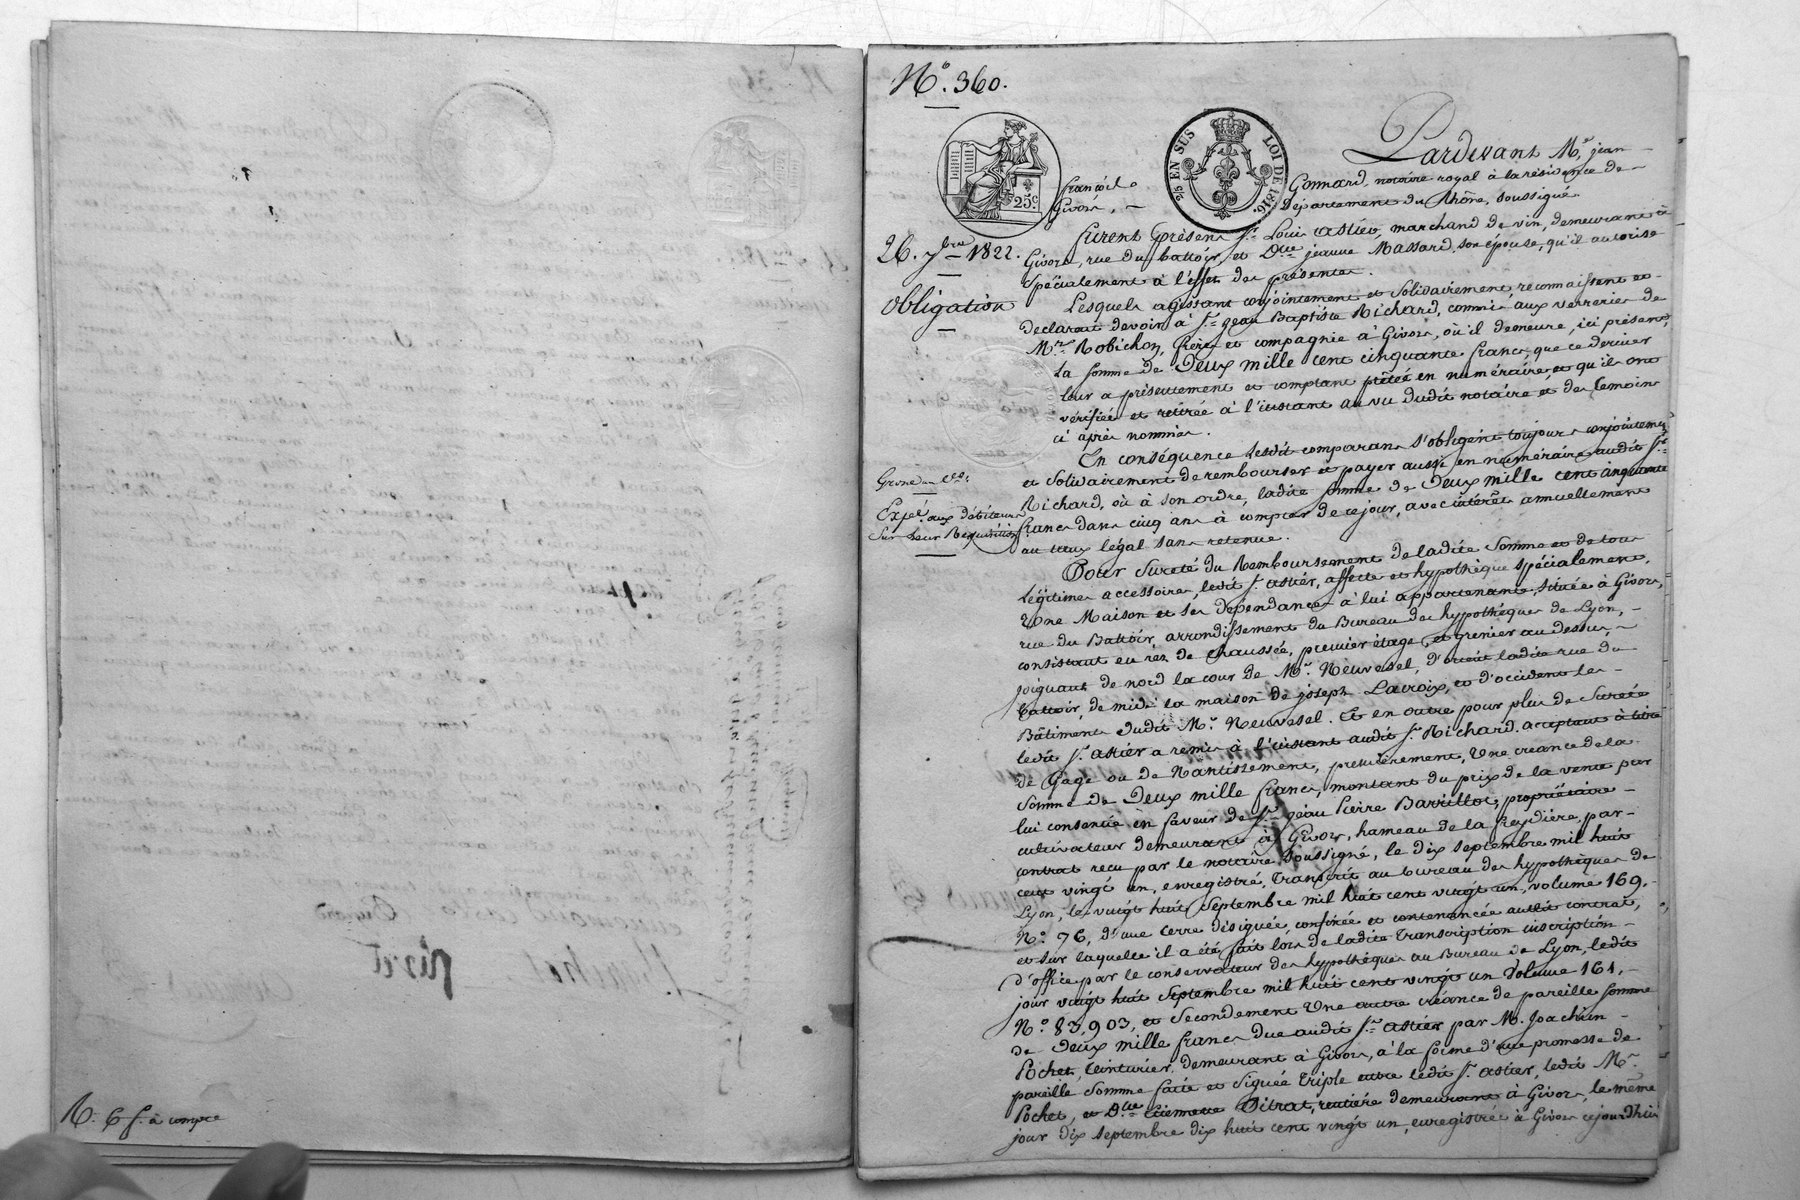 R. 6 f. à compte
N.° 360.
EN SUS
LOI DE 1816.
25.c
26. 7bre 1822.
Obligation
Grosse au
Expé. aux débiteurs
sur leur Réquisition
Pardevant M.e jean
françois Gonnard, notaire royal à la résidence de
Givors, Département du Rhône, soussigné
furent présens S.r Louis astier, marchand de vin, demeurant à
Givors, rue du battoir, et D.lle jeanne Massard, son épouse, qu'il autorise
Spécialement à l'effet des présentes.
Lesquels agissant conjointement et Solidairement reconnaissent et
declarent devoir à S.r jean Baptiste Richard, commis aux verreries de
M.rs Robichon, frères et compagnie à Givors, où il demeure, ici présent,
La somme de Deux mille cent cinquante francs, que ce dernier
leur a présentement et comptant prêtée en numéraire, et qu'ils ont
vérifiée et retirée à l'instant au vu dudit notaire et des temoins
ci après nommés.
En conséquence lesdits comparans s'obligent toujours conjointement
et Solidairement de rembourser et payer aussi en numéraire audit S.r
Richard, où à son ordre, ladite somme de Deux mille cent cinquante
francs dans cinq ans à compter de ce jour, avec intérêt annuellement
au taux légal sans retenue.
Pour Sureté du Remboursement de ladite Somme et de tous
Légitimes accessoires, ledit S.r astier, affecte et hypothèque spécialement,
Une Maison et ses dépendances à lui appartenant, située à Givors,
rue du Battoir, arrondissement du Bureau des hypothèques de Lyon,
consistant en rez de chaussée, premier étage et grenier au dessus,
joignant de nord la cour de M.r Neuvesel, d'orient ladite rue du
Battoir, de midi la maison de joseph Lavroix, et d'occident les
Bâtimens dudit M.r Neuvesel. Et en outre pour plus de Sureté
ledit S.r astier a remis à l'instant audit S.r Richard, acceptant à titre
de Gage ou de Nantissement, premièrement, Une creance de la
Somme de Deux mille francs, montant du prix de la vente par
lui consentie en faveur de S.r jean Pierre Barrillot, propriétaire
cultivateur demeurant à Givors, hameau de la freydière, par
contrat reçu par le notaire soussigné, le dix septembre mil huit
cent vingt un, enregistré, Transcrit au bureau des hypothèques de
Lyon, le vingt huit septembre mil huit cent vingt un, volume 169,
N.° 76, d'une terre désignée, confinée et contenancée audit contrat,
et sur laquelle il a été fait lors de ladite Transcription inscription
d'office par le conservateur des hypothèques au Bureau de Lyon, ledit
jour vingt huit Septembre mil huit cent vingt un Volume 161,
N.° 83,903, et Secondement Une autre créance de pareille somme
de Deux mille francs due audit S.r astier par M. Joachim
Pochet, teinturier, demeurant à Givors, à la forme d'une promesse de
pareille Somme faite et Signée triple entre ledit S.r astier, ledit M.r
Pochet, et D.lle Etiennette Ditrat, rentière demeurant à Givors, le même
jour dix septembre dix huit cent vingt un, enregistrée à Givors cejourd'hui